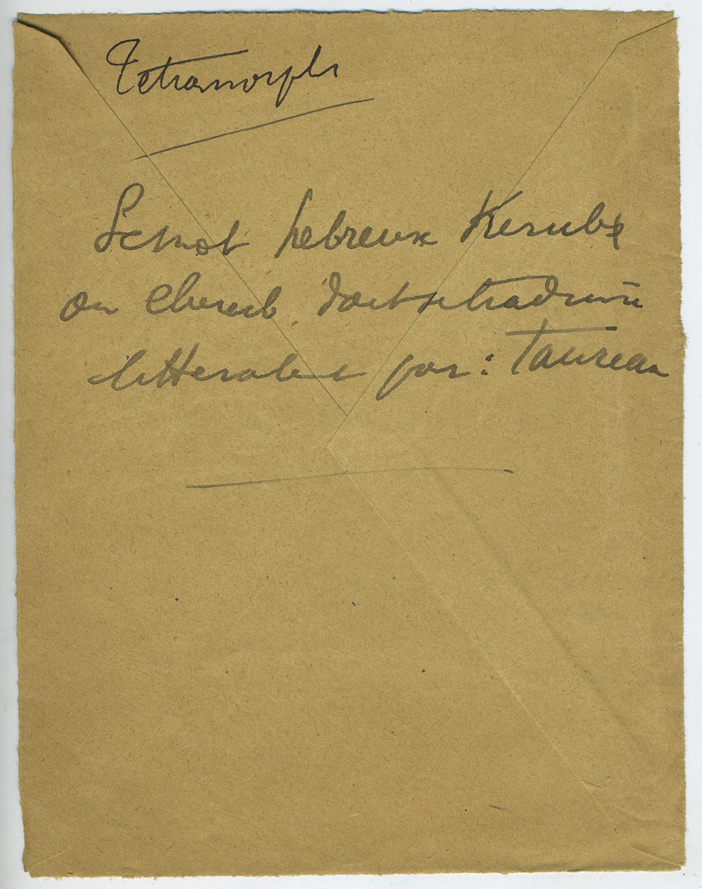 Tetramorph
Le mot hebreux Kerub
ou Cherub doit se traduire
litteralet par : Taureau